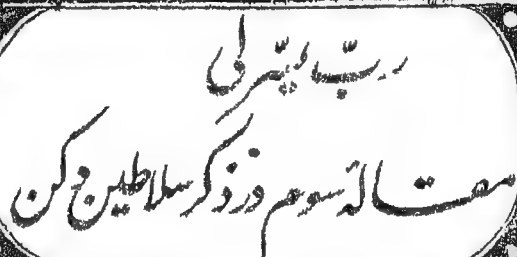 رب یسّر لی
مقالهٔ سوم در ذکر سلاطین دکن